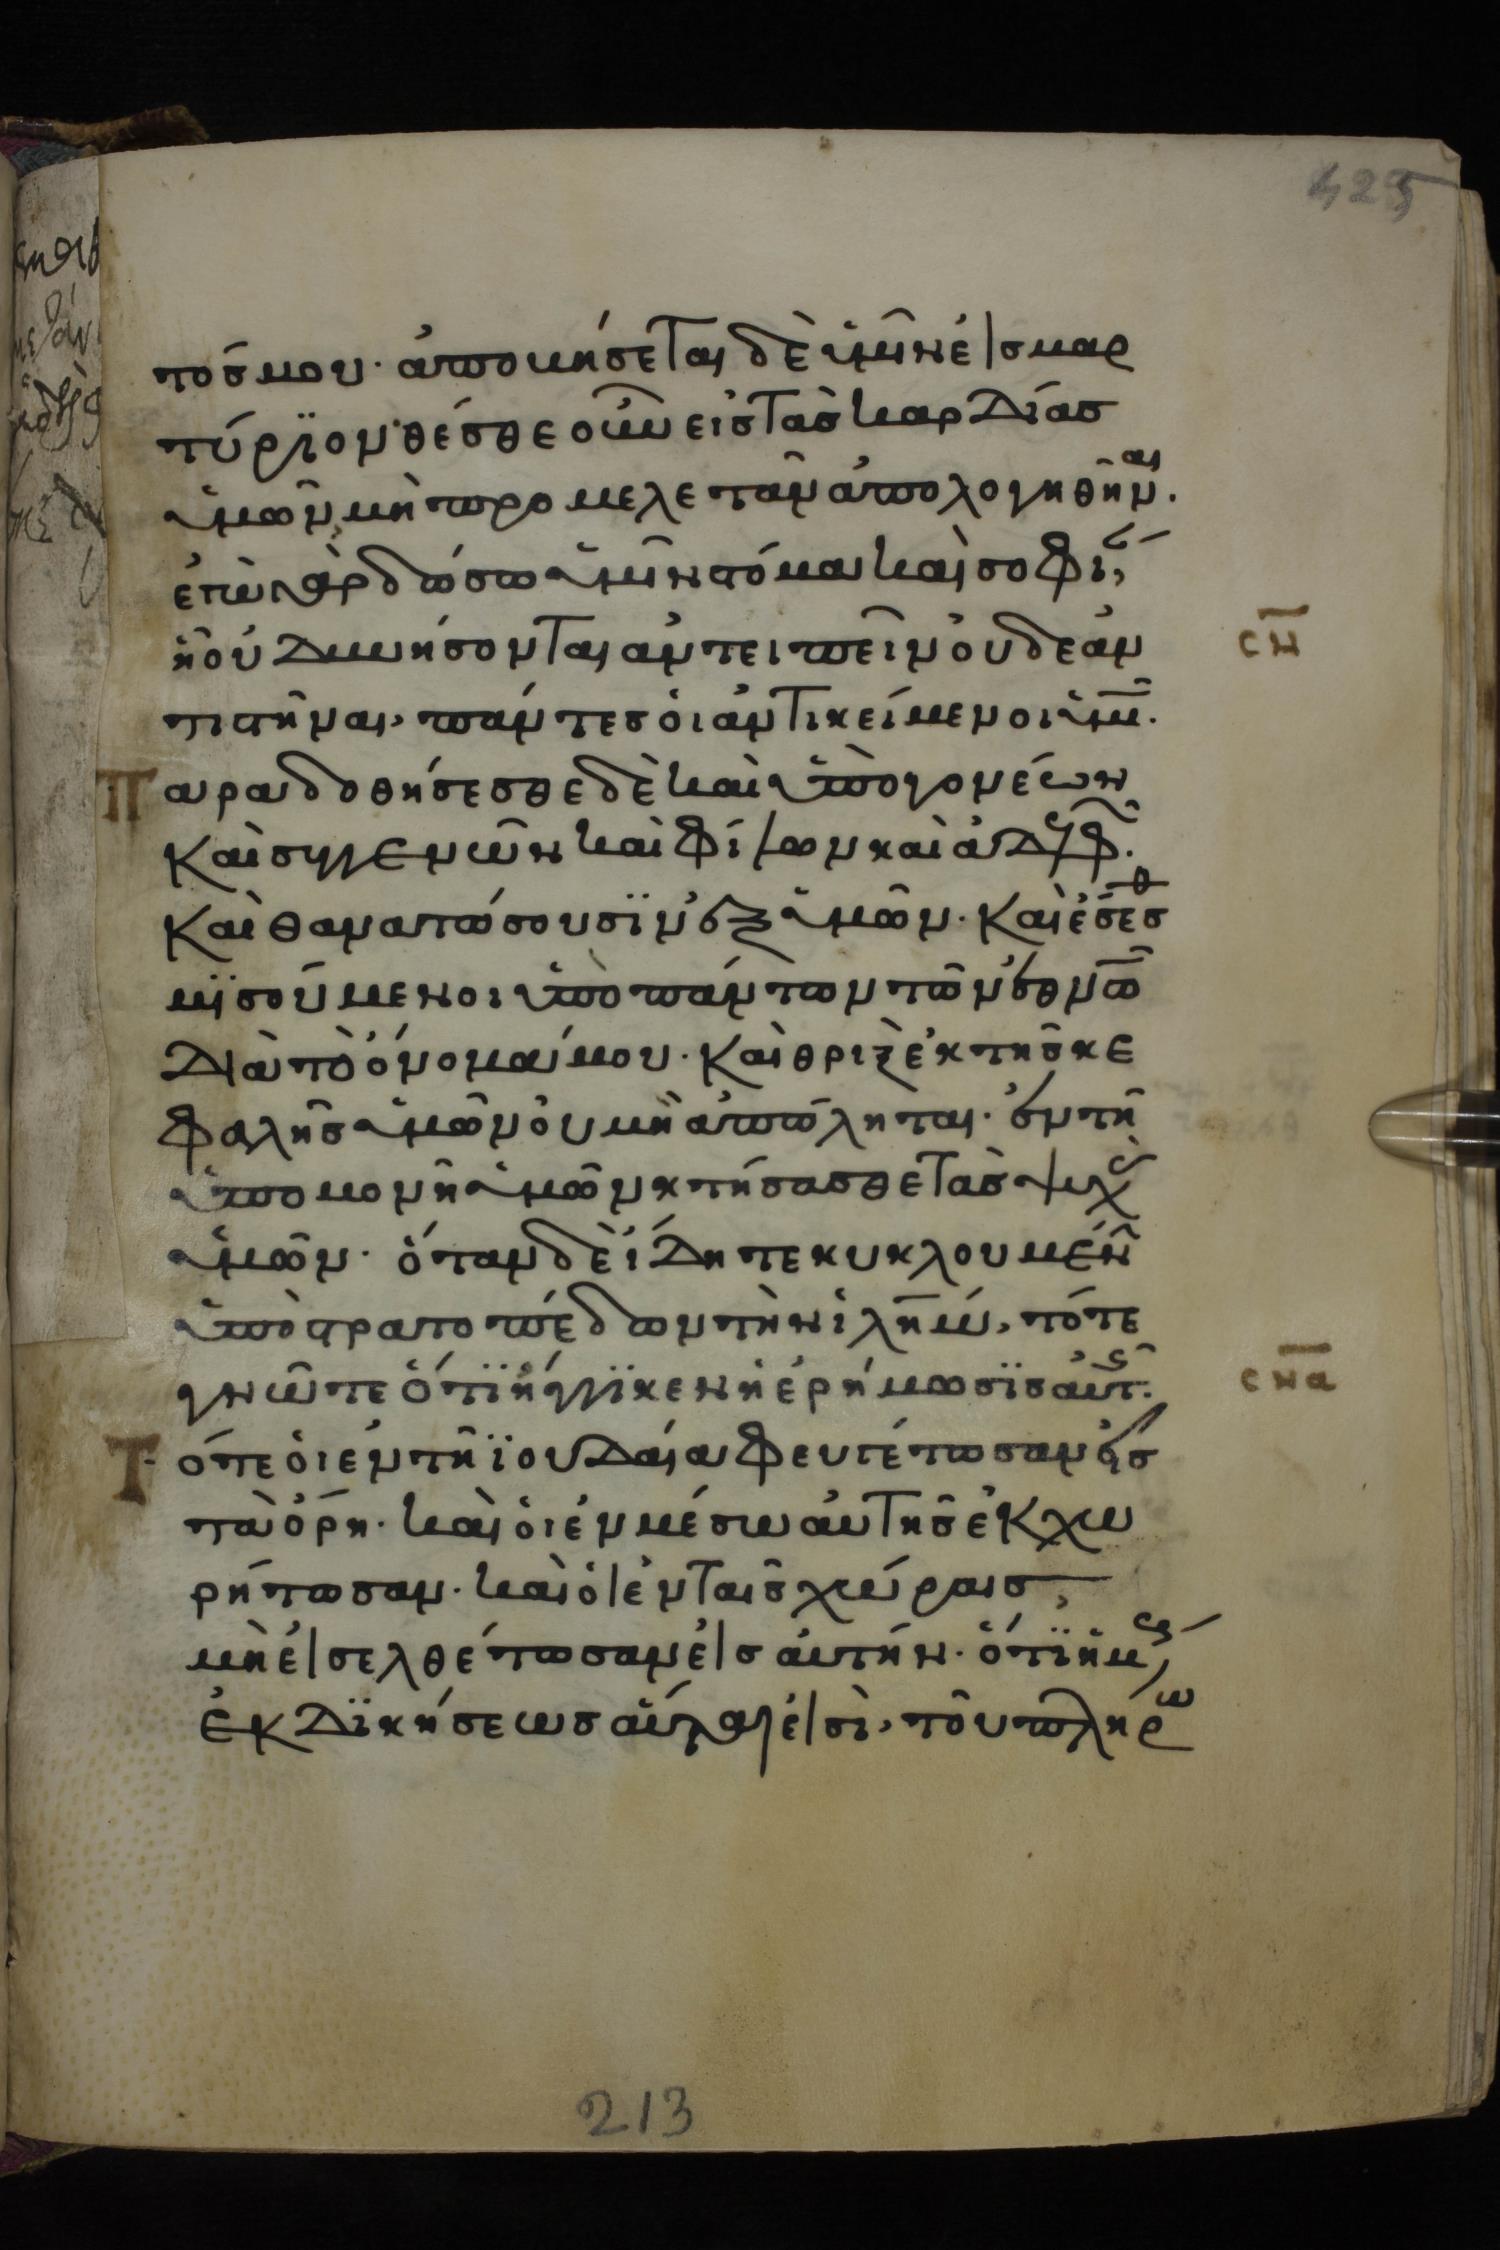 425
τόσ μου· ἀποκήσεται δὲ ὑμῖν εἰσ μαρ
τύρϊον· θέσθε οὖν εἰσ τὰσ καρδίασ
ὑμῶν μὴ προμελετᾶν ἀπολογηθῆν<αι>·
ἐγὼ γὰρ δώσω ὑμῖν στόμα καὶ σοφί,
ἧ οὐ δυνήσονται ἀντειπεῖν οὐδὲ ἀν
τιστῆναι, πάντεσ ὁι ἀντικείμενοι ὑμ͂·
Παραδοθήσεσθε δὲ καὶ ὑπὸ γονέων
καὶ συγγενῶν καὶ φίλων καὶ ἀδ<ελ>φ͂·
καὶ θανατώσουσϊν ἐξ ὑμῶν· καὶ ἔσεσθ
μϊσούμενοι ὑπὸ πάντων τῶν ἐθνῶ
διὰ τὸ ὄνομά μου· καὶ θρὶξ ἐκ τῆσ κε
φαλῆσ ὑμῶν οὐ μὴ ἀπόληται· ἐν τῆ
ὑπομονῆ ὑμῶν κτήσασθε τὰσ ψυχ<ὰς>
ὑμῶν· ὅταν δὲ ἴδητε κυκλουμέν
ὑπὸ στρατοπέδων τὴν ἰλημ, τότε
γνῶτε ὅτϊ ἤγγϊκεν ἡ ἐρήμωσϊσ ἀυτ<ῆς>·
Τότε ὁι ἐν τῆ ϊουδαία φευγέτωσαν εἰσ
τὰ ὄρη· καὶ ὁι ἐν μέσω ἀυτῆσ ἐκχω
ρήτωσαν· καὶ ὁι ἐν ταῖσ χώραισ,
μὴ εἰσελθέτωσαν εἰσ ἀυτήν· ὅτϊ ἡμ<έραι>
ἐκδϊκήσεωσ ἀῦται εἰσὶ, τοῦ πληρω
σν̅
σνα̅
213